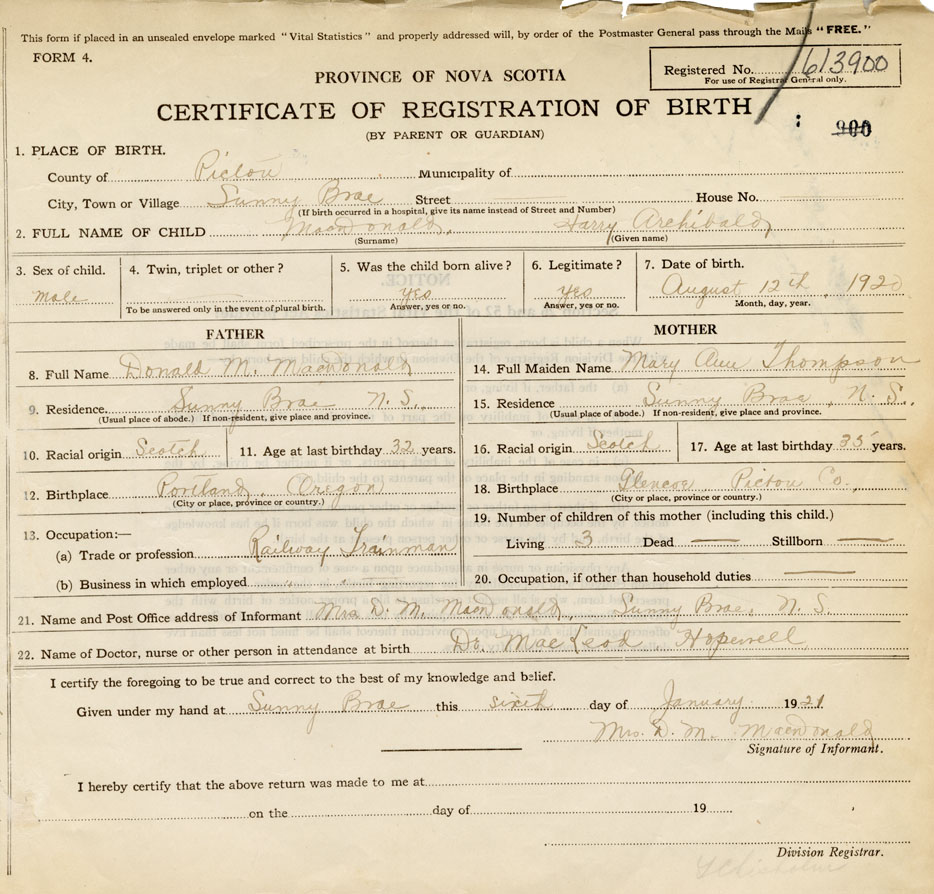 This form if placed in an unsealed envelope marked "Vital Statistics" and properly addressed will, by order of the Postmaster General pass through the Mails "FREE."
FORM 4.
Registered No. 613900
For use of Registrar General only.
PROVINCE OF NOVA SCOTIA
CERTIFICATE OF REGISTRATION OF BIRTH
(BY PARENT OR GUARDIAN)
900
1. PLACE OF BIRTH.
County of Pictou Municipality of
City, Town or Village Sunny Brae Street House No.
(If birth occurred in a hospital, give its name instead of Street and Number)
2. FULL NAME OF CHILD MacDonald, Harry Archibald
(Surname) (Given name)
3. Sex of child. 4. Twin, triplet or other? 5. Was the child born alive? 6. Legitimate? 7. Date of birth.
male yes yes August 12th, 1920
To be answered only in the event of plural birth. Answer, yes or no. Answer, yes or no. Month, day, year.
FATHER MOTHER
8. Full Name Donald M. MacDonald 14. Full Maiden Name Mary Ann Thompson
9. Residence Sunny Brae N.S. 15. Residence Sunny Brae, N.S.
(Usual place of abode.) If non-resident, give place and province. (Usual place of abode.) If non-resident, give place and province.
10. Racial origin Scotch 11. Age at last birthday 32 years. 16. Racial origin Scotch 17. Age at last birthday 35 years.
12. Birthplace Portland, Oregon 18. Birthplace Glencoe Pictou Co.
(City or place, province or country.) (City or place, province or country.)
13. Occupation:— 19. Number of children of this mother (including this child.)
(a) Trade or profession Railway Trainman Living 3 Dead — Stillborn —
(b) Business in which employed 20. Occupation, if other than household duties —
21. Name and Post Office address of Informant Mrs D. M. MacDonald, Sunny Brae, N.S.
22. Name of Doctor, nurse or other person in attendance at birth Dr. MacLeod, Hopewell
I certify the foregoing to be true and correct to the best of my knowledge and belief.
Given under my hand at Sunny Brae this sixth day of January 1921
Mrs. D. M. MacDonald
Signature of Informant.
I hereby certify that the above return was made to me at
on the day of 19
Division Registrar.